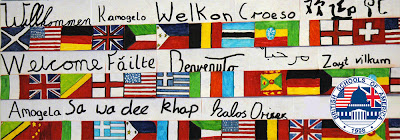 Willkommen Kamogelo Welkon Croeso
Welcome Fáilte Benvenuto مرحبا Zayt vilkum
Amogela Sa wa dee khap Kalos
BRITISH SCHOOLS OF AMERICA